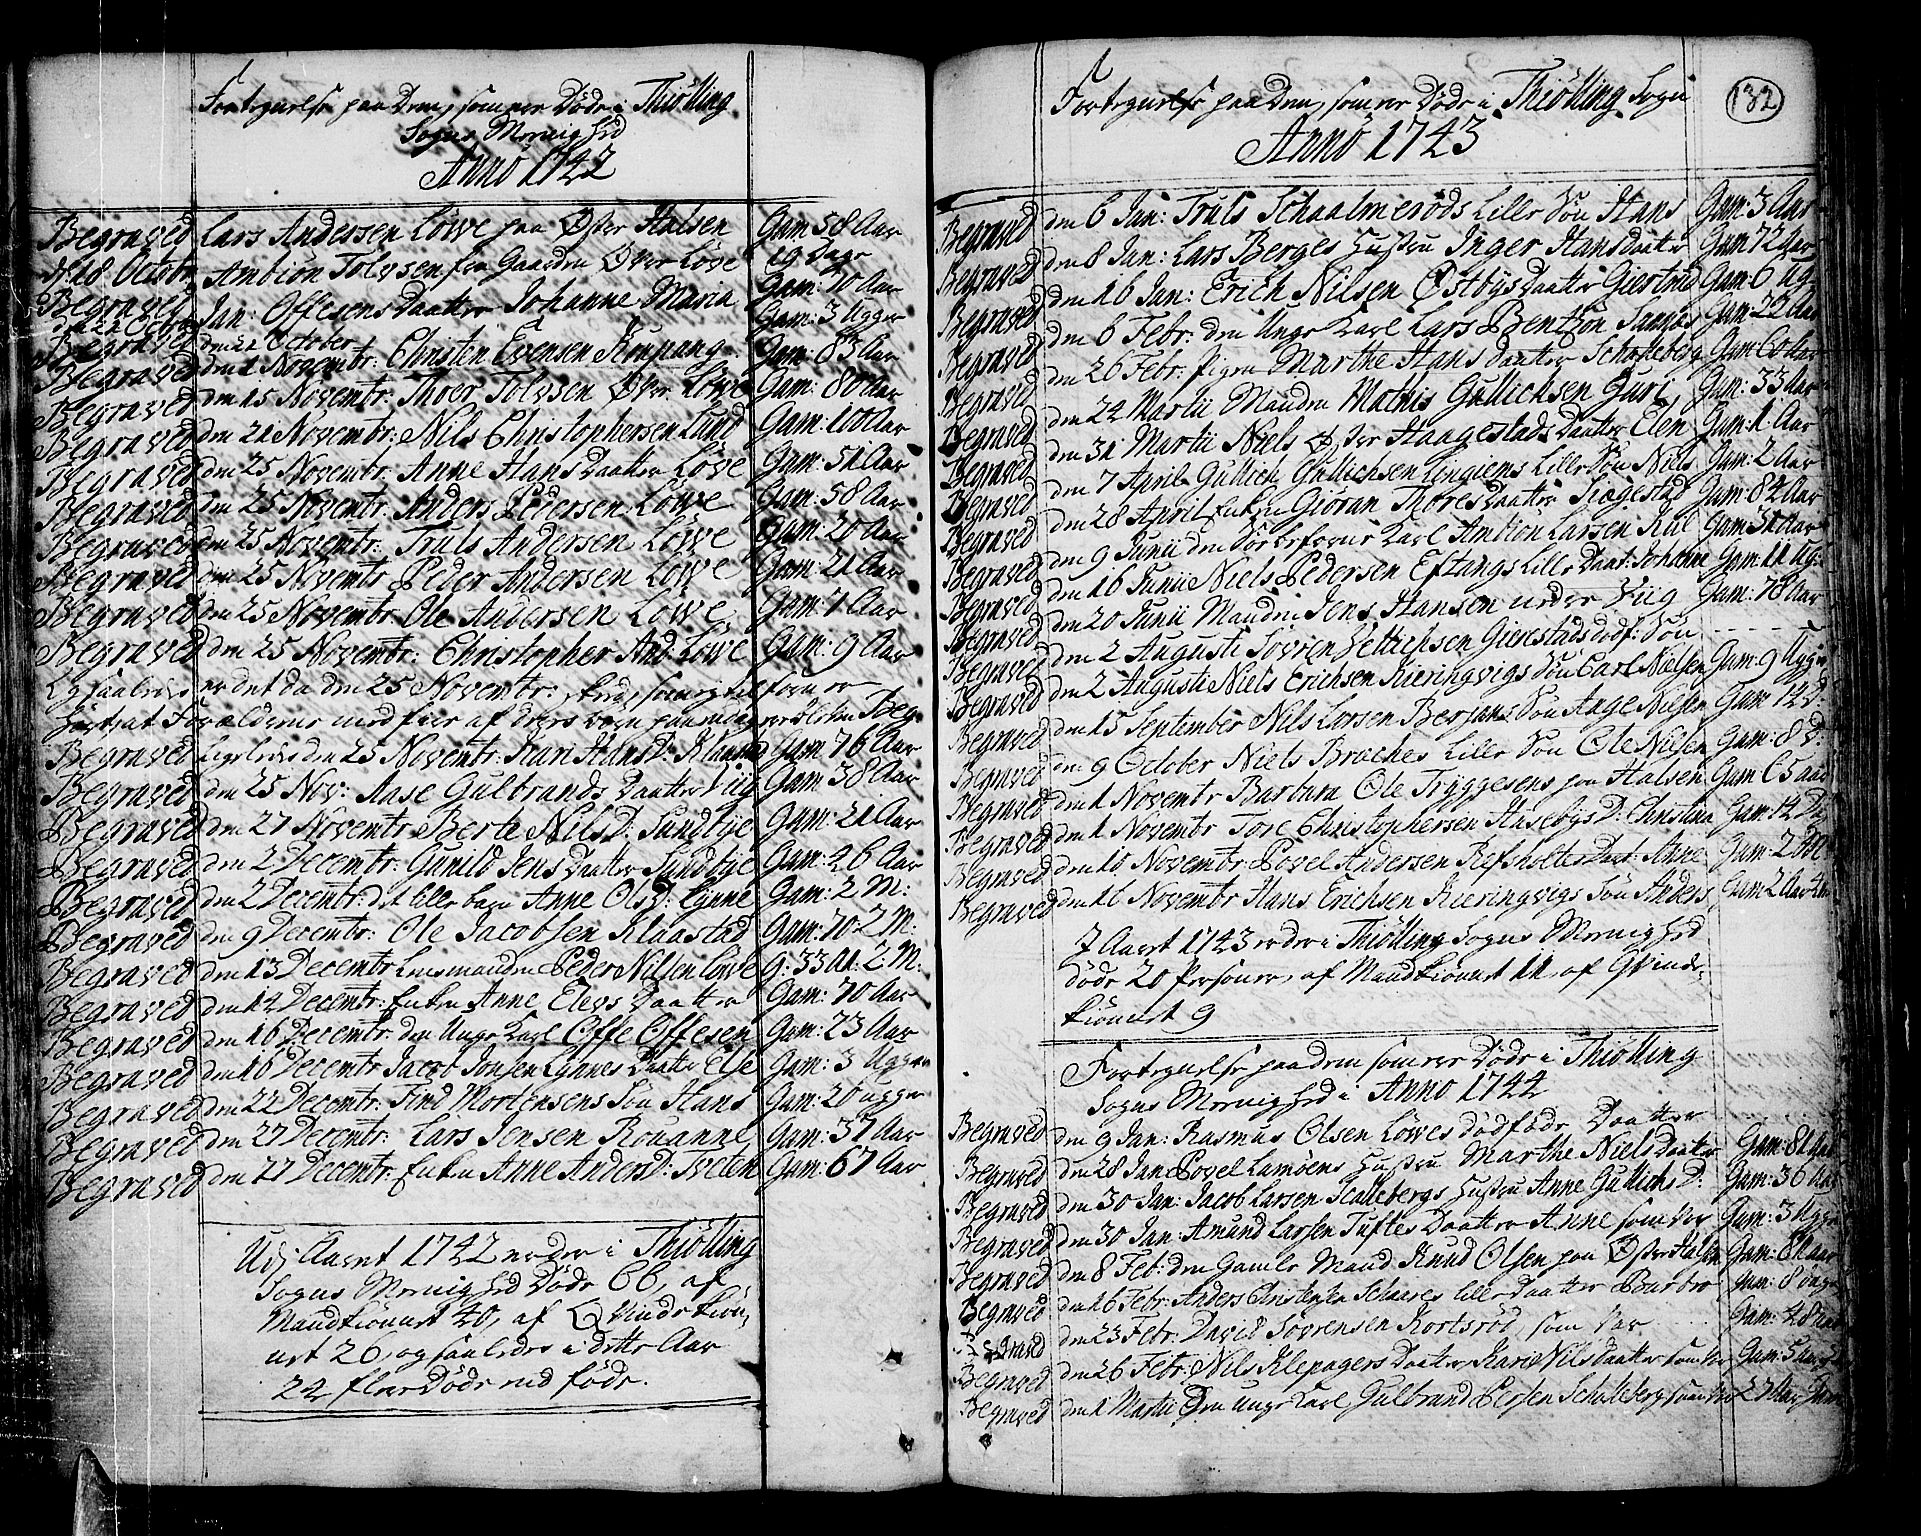 Fortegnelse paa Dem, som ere Døde i Thiølling
Sogns Menighed
Anno 1742
Begraved Lars Andersen Löwe paa Øster Halsen Gam 58 Aar
d. 18 Octobr. Ambiön Tolvsen fra Gaarden Øvre Löve 19 Dage
Begraved Gam: 70 Aar
den 22 Octobr Jan: Offesens Daatter Johanne Maria Gam: 3 Uger
Begraved den 22 October
Begraved den 1 Novembr: Christen Evensen Kaupang Gam: 83 Aar
Begraved den 15 Novembr: Thoer Tolvsen Øvre Löwe Gam: 80 Aar
Begraved den 21 Novembr: Nils Christophersen Lund Gam: 100 Aar
Begraved den 25 Novembr: Anne Hans Daatter Löve Gam: 51 Aar
Begraved den 25 Novembr: Anders Pedersen Löwe Gam: 58 Aar
Begraved den 25 Novembr: Truls Andersen Löwe Gam: 20 Aar
Begraved den 25 Novembr: Peder Andersen Löwe Gam: 21 Aar
Begraved den 25 Novembr: Ole Andersen Löwe Gam: 7 Aar
Begraved den 25 Novembr: Christopher And: Löwe Gam: 9 Aar
er det da den 25 Novembr:
Forældrene med fiire af deres børn paa en dag ere blefne Beg:
Begraved ligeledes den 25 Novembr: Kari Hans D: Klaastad Gam 76 Aar
Begraved den 25 Nov: Aase Gulbrands Daatter Viig Gam 38 Aar
Begraved den 27 Novembr: Berte Nils D: Sundbye Gam: 21 Aar
Begraved den 2 Decembr: Gunild Jens Daatter Sundbye Gam: 26 Aar
Begraved den 2 Decembr: det lille barn Anne Ols D: Lynne Gam: 2 M:
Begraved den 9 Decembr: Ole Jacobsen Klaastad Gam: 70 2 M:
Begraved den 13 Decembr Lensmanden Peder Nilsen Löwe G: 33 Aa: 2 M:
Begraved den 14 Decembr: Enken Anne Elevs Daatter Gam: 70 Aar
Begraved den 16 Decembr: den Unge Karl Offe Offesen Gam: 23 Aar
Begraved den 16 Decembr Jacob Jonsen Lynnes Daatter Else Gam: 3 Uger
Begraved den 22 Decembr: Find Mortensens Søn Hans Gam: 26 uger
Begraved den 27 Decembr: Lars Jensen Rouanne Gam: 37 Aar
Begraved den 27 Decembr: Enken Anne Anders D: Tveten Gam: 67 Aar
Udj Aaret 1742 er der i Thiølling
Sogns Menighed Døde 66, af
Mandkiønnet 40, af Qvindekiøn-
net 26, og saaledes i dette Aar
24 flere Døde end fødde.
132
Fortegnelse paa Dem, som ere Døde i Thiølling Sogn
Anno 1743
Begraved den 6 Jan: Truls Schaalmerøds Lille Søn Hans Gam: 3 Aar
Begraved den 8 Jan: Lars Berges Hustru Inger Hansdaatter Gam 72 Aar
Begraved den 16 Jan: Erich Nilsen Østbys Daatter Giertrud Gam 6 Ug
Begraved den 6 Febr: den Unge Karl Lars Bentsøn Gam: 22 Aar
Begraved den 26 Febr: Pigen Marthe Hans Daatter Schalleberg Gam: 60 Aar
Begraved den 24 Martii Manden Mathis Gullichsen Guri Gam: 33 Aar
Begraved den 31 Martii Niels Øster Haagestads Daatter Elen Gam: 1 Aar
Begraved den 7 April Gullich Gullichsen Lingiems Lille Søn Niels Gam: 2 Aar
Begraved den 28 April Enken Giøran Thores Daatter Skegestad Gam: 84 Aar
Begraved den 9 Junii den Karl Ambion Larsen Gam: 31 Aar
Begraved den 16 Junii Niels Pedersen Eftangs Lille Daat: Johanne Gam: 11 Ug:
Begraved den 20 Junii Manden Jens Hansen nedre Viig Gam: 78 Aar
Begraved den 2 Augusti Sövren Gierstads dødf: Søn
Begraved den 2 Augusti Niels Erichsen Kieringvigs Søn Carl Nielsen Gam: 9 Uger
Begraved den 15 September Nils Lorsen Bergans Søn Aage Nielsen Gam 14 D:
Begraved den 9 October Niels Braches Lille Søn Ole Nilsen Gam: 8 D:
Begraved den 1 Novembr Barbara Ole Tryggesens paa Halsen Gam 65 aar
Begraved den 1 Novembr Tore Christophersen Husebys D: Christina Gam: 14 D:
Begraved den 10 Novembr Povel Andersen Refsholts Daat: Anne Gam: 2 M
Begraved den 16 Novembr Hans Erichsen Kieringvigs Søn Anders Gam: 2 Aar
I Aaret 1743 er der i Thiølling Sogns Menighed
døde 20 Personer, af Mandkiønnet 11, af Qvinde-
kiønnet 9
Fortegnelse paa dem som ere Døde i Thiølling
Sogns Menighed i Anno 1744
Begraved den 9 Jan: Rasmus Olsen Löwes dødfødde Daatter
Begraved den 28 Jan: Povel Lamøens Hustru Marthe Niels Daatter Gam: 81 Aar
Begraved den 30 Jan: Jacob Larsen Scallebergs Hustru Anne Gullichs D: Gam: 36 Aar
Begraved den 30 Jan: Amund Larsen Tuftes Daatter Anne som var Gam: 3 Uger
Begraved den 8 Feb: den Gamle Mand Knud Olsen paa Øster Halsen Gam: 81 aar
Begraved den 16 Febr: Anders Christensen Schaares lille Daatter Barbro Gam: 8 uger
Begraved den 23 Febr: David Sövrensen Kortsrød, som var Gam: 48 aar
Begraved den 26 Febr: Nils Klepagers Daatter, Karie Nilsdaatter som var Gam: 5 aar
Begraved den 1 Martii Den unge karl Gulbrand Persen Schalleberg som var 27 Aar Gam